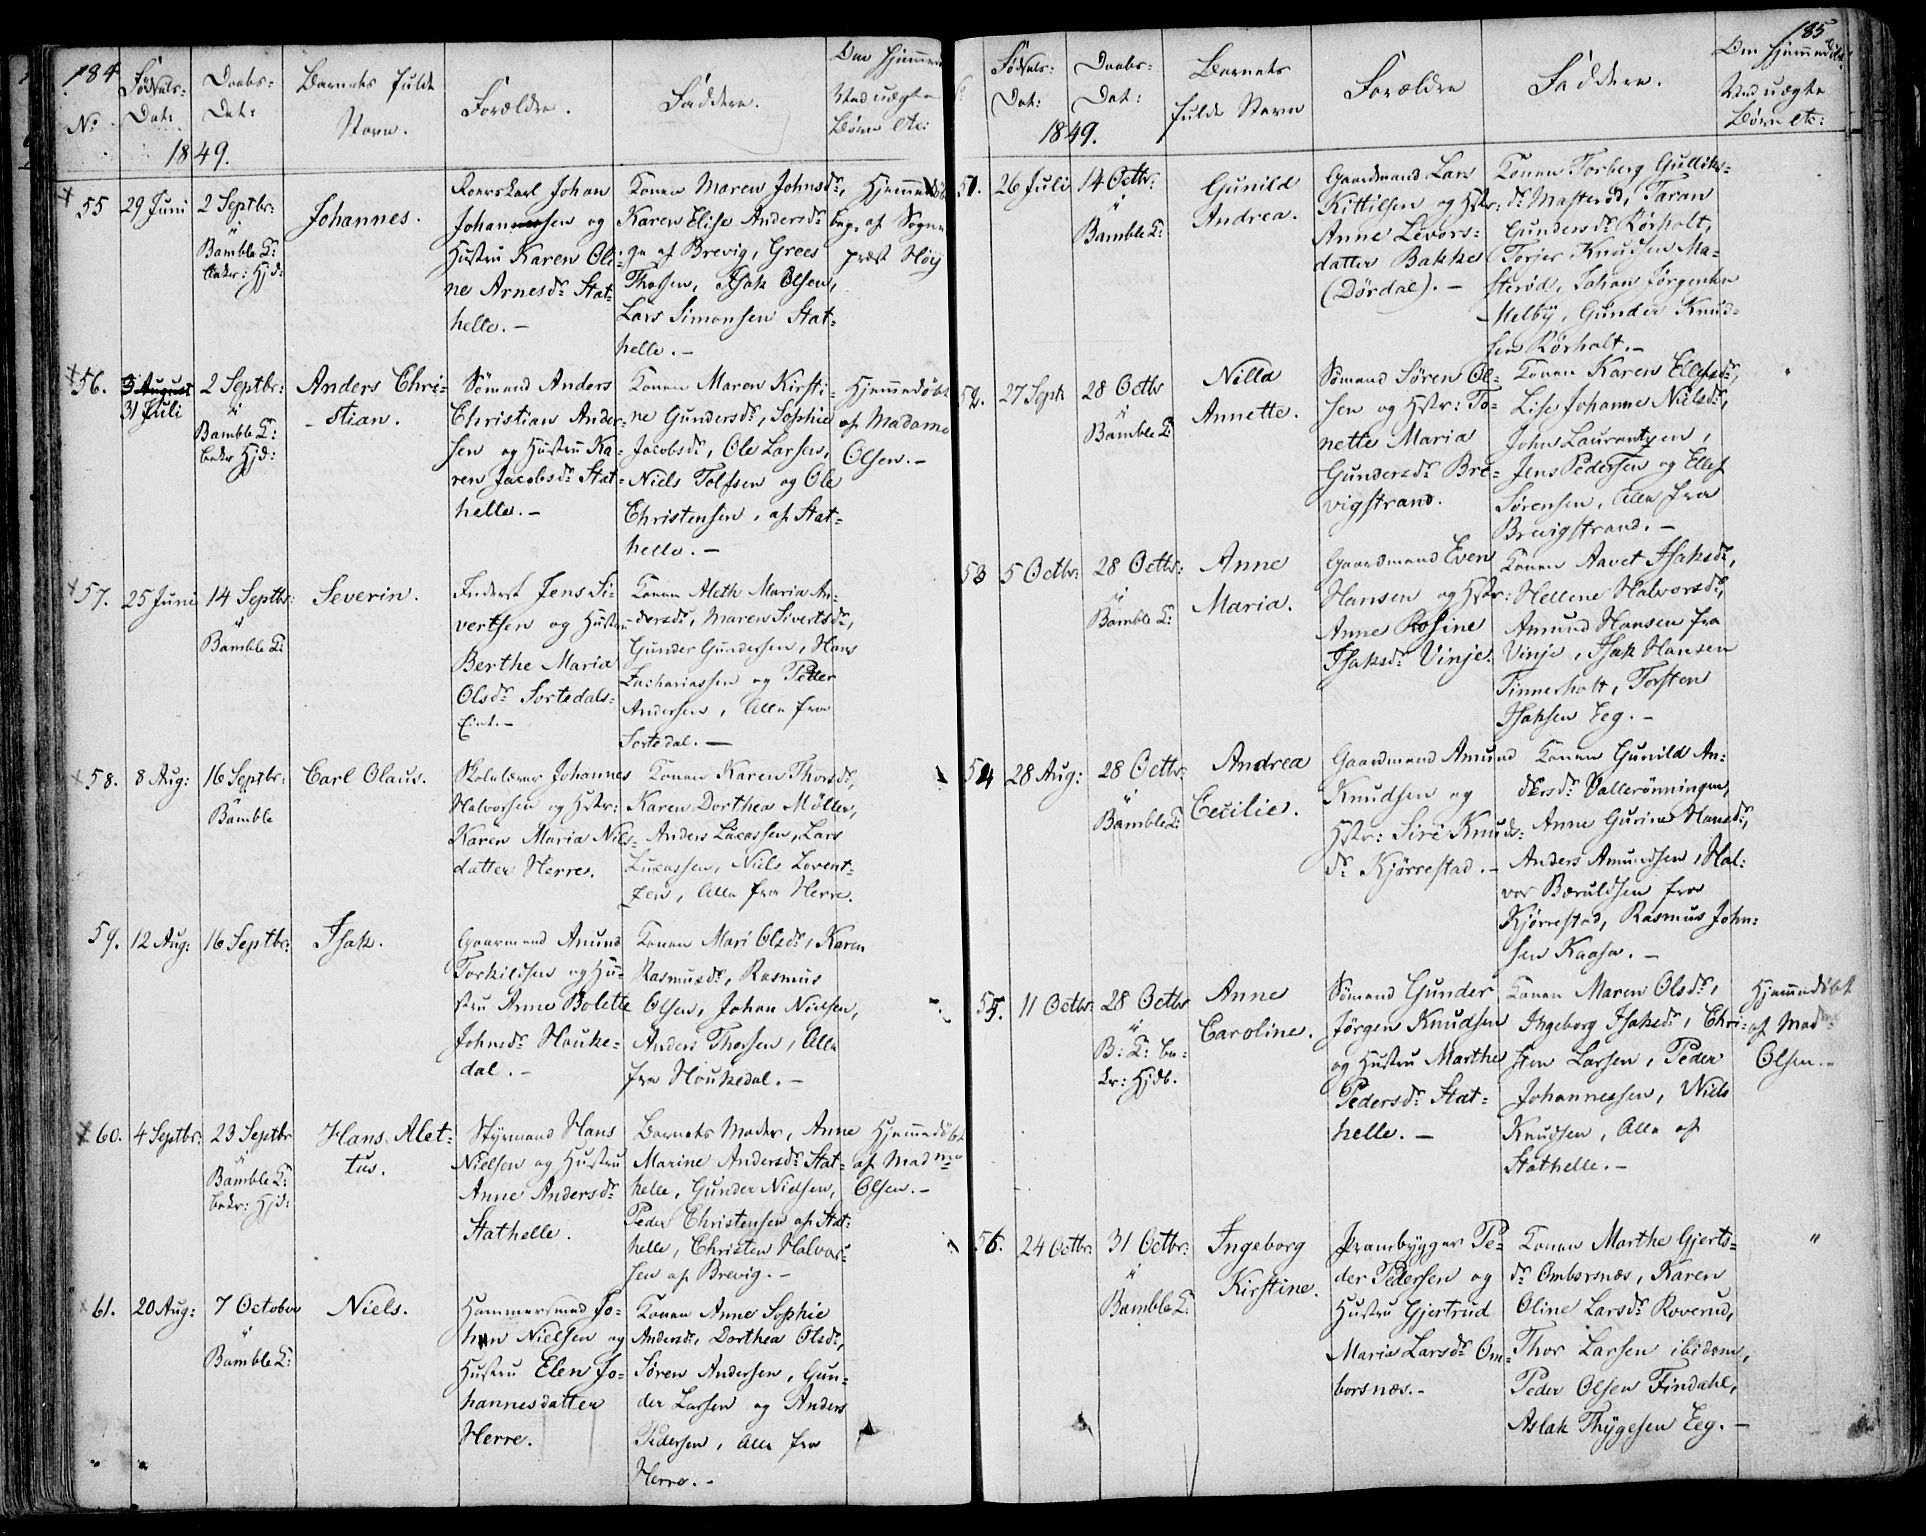 184
No
Fødsels-
Dat:
1849.
Daabs-
Dat:
Barnets fulde
Navn.
Forældre.
Faddere.
Om Hjemmed
Ved uægte
Børn etc:
55
29 Juni
2 Septbr:
"
Bamble K:
Johannes.
Johannessen og
Hustru Karen Oli-
ne Arnesdr Stat-
helle. -
Konen Maren Johnsdr,
Karen Elise Andersdr
Thossen, Isak Olsen,
Lars Simonsen Stat-
helle. -
af Sogne
præst Höÿ
56.
3 August
31 Juli
2 Septbr:
"
Bamble K:
bekr Hjd:
Anders Chri-
stian.
Sömand Anders
Christian Ander-
sen og Hustru Ka-
ren Jacobsdr Stat-
helle. -
Konen Maren Kirsti-
ne Gundersdr, Sophie
Jacobsdr, Ole Larsen,
Niels Tolfsen og Ole
Christensen, af Stat-
helle. -
Hjemmedöbt
af Madame
Olsen. -
57.
25 Juni
14 Septbr:
"
Bamble K:
Severin.
Inderst Jens Si-
vertsen og Hustru
Berthe Maria
Olsdr Sortedals-
Eiet. -
Konen Aleth Maria An-
dersdr, Maren Sivertsdr,
Gunder Gundersen, Hans
Zachariassen og Peder
Andersen, Alle fra
Sortedal. -
58.
8 Aug:
16 Septbr:
"
Bamble
Carl Olaus.
Skolelærer Johannes
Halvorsen og Hstr:
Karen Maria Niels-
datter Herre.
Konen Karen Thorsdr,
Karen Dorthea Möller,
Anders Lucassen, Lars
Lucassen, Niels Lorent-
zen, Alle fra Herre.
59.
12 Aug:
16 Septbr:
Isak.
Gaarmand Anund
Torkildsen og Hu-
stru Anne Bolette
Johnsdr Houke-
dal. -
Konen Mari Olsdr, Karen
Rasmusdr, Rasmus
Olsen, Johan Nielsen,
Anders Thorsen, Alle
fra Houkedal. -
60.
4 Septbr:
23 Septbr
"
Bamble K:
bekr: Hjd:
Hans Alet-
tus.
Styrmand Hans
Nielsen og Hustru
Anne Andersdr
Stathelle.
Barnets Moder, Anne
Marine Andersdr Stat-
helle, Gunder Nielsen,
Peder Christensen af Stat-
helle, Christen Halvor-
sen af Brevig. -
Hjemmedöbt
af Madme
Olsen. -
61.
20 Aug:
7 October
"
Bamble K:
Niels.
Hammersmed Jo-
han Nielsen og
Hustru Elen Jo-
hannesdatter
Herre.
Konen Anne Sophie
Andersdr, Dorthea Olsdr,
Sören Andersen, Gun-
der Larsen og Anders
Pedersen, Alle fra
Herre. -
185
Fødsels-
Dat:
1849.
Daabs-
Dat:
Barnets
fulde Navn
Forældre
Faddere.
Om Hjemmedöbt
Ved uægte
Børn etc:
51.
26 Juli
14 Octbr:
"
Bamble K:
Gunild
Andrea.
Gaardmand Lars
Kittilsen og Hstr:
Anne Levors-
datter Bakke
(Dördal). -
Konen Torberg Gulliks-
dr Masteröd, Taran
Gundersdr Rörholt,
Torjer Knudsen Ma-
steröd, Johan Jörgensen
Melbÿ, Gunder Knud-
sen Rörholt. -
52.
27 Septr
28 Octbr
"
Bamble K:
Nilla
Annette.
Sömand Sören Ol-
sen og Hstr: To-
nette Maria
Gundersdr Bre-
vigstrand.
Konen Karen Ellefsdr,
Lise Johanne Nielsdr,
John Laurantzen,
Jens Pedersen og Ellef
Sörensen, Alle fra
Brevigstrand. -
53
5 Octbr:
28 Octbr:
"
Bamble K:
Anne
Maria.
Gaardmand Even
Hansen og Hstr:
Anne Rosine
Isaksdr Vinje.
Konen Aavet Isaksdr,
Hellene Halvorsdr,
Amund Hansen fra
Vinje, Isak Hansen
Tinnerholt, Torsten
Isaksen Eeg. -
54
28 Aug:
28 Octbr:
"
Bamble K:
Andrea
Cecilie.
Gaardmand Amund
Knudsen og
Hstr: Siri Knuds-
dr Kjörrestad. -
Konen Gunild An-
dersdr Vallerönningen,
Anne Gurine Hansdr,
Anders Amundsen, Hal-
vor Bæruldsen fra
Kjörrestad, Rasmus John-
sen Kaasa. -
55.
11 Octbr:
28 Octbr
"
B: K: be-
kr: Hjdb.
Anne
Caroline.
Sömand Gunder
Jörgen Knudsen
og Hustru Marthe
Pedersdr Stat-
helle. -
Konen Maren Olsdr,
Ingeborg Isaksdr, Chri-
sten Larsen, Peder
Johannesen, Niels
Knudsen, Alle af
Stathelle. -
Hjemmedöbt
af Madme
Olsen. -
56.
24 Octbr:
31 Octbr:
"
Bamble K:
Ingeborg
Kirstine.
Prambygger Pe-
der Pedersen og
Hustru Gjertrud
Maria Larsdr Om-
borsnæs. -
Konen Marthe Gjerts-
dr Omborsnæs, Karen
Oline Larsdr Roverud,
Thor Larsen ibidem,
Peder Olsen Findahl,
Aslak Thÿgesen Eeg. -
"